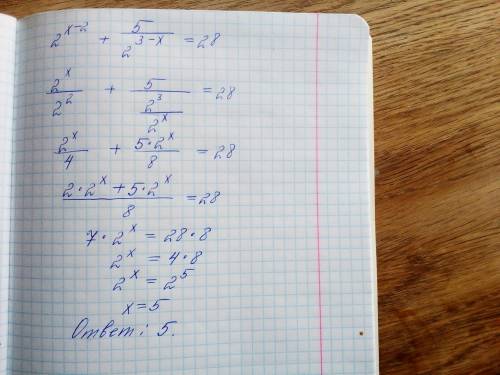 2^(x-2) + 5/2^(3-x) = 28
2^x/2^2 + 5/(2^3/2^x) = 28
2^x/4 + 5·2^x/8 = 28
(2·2^x + 5·2^x)/8 = 28
7·2^x = 28·8
2^x = 4·8
2^x = 2^5
x = 5
Ответ: 5.